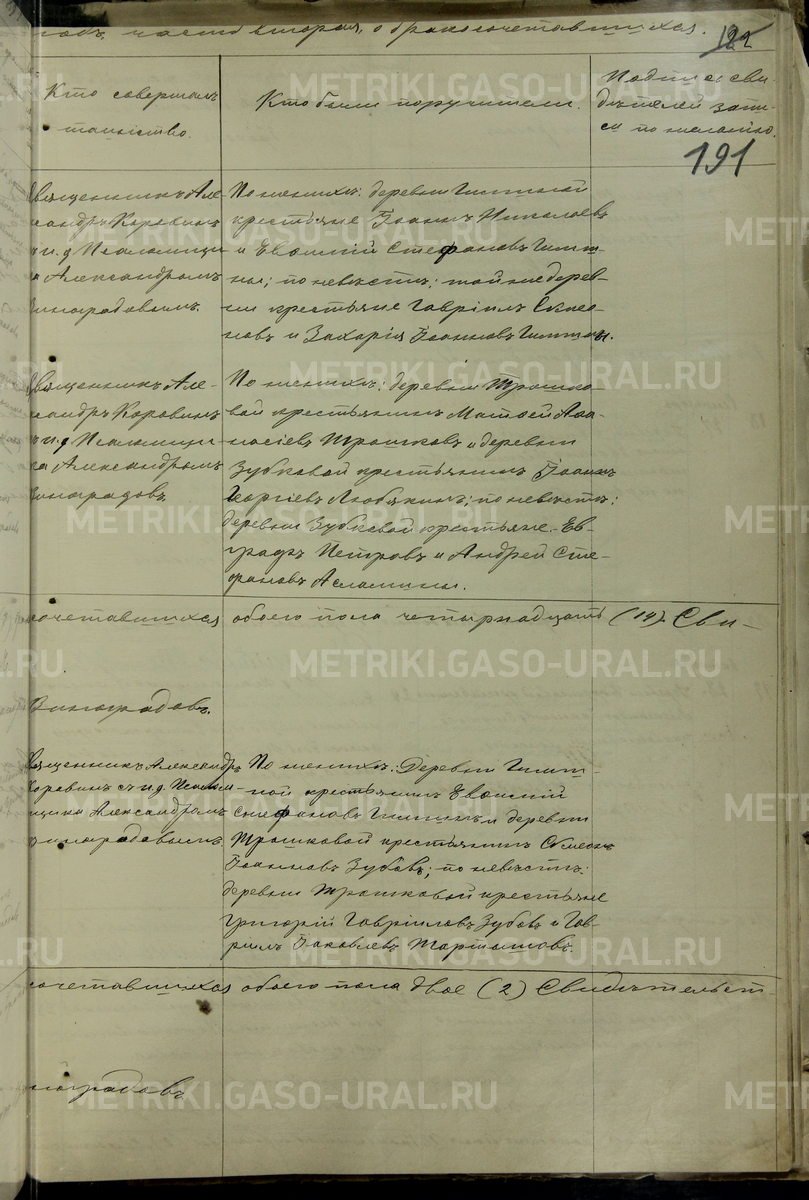 годъ, часть вторая, о бракосочетавшихся. 122
Кто совершалъ
таинство.
Кто были поручители.
Подпись сви-
дѣтелей запи-
си по желанію.
191
Священникъ Але-
ксандръ Коровинъ
съ и. д. Псаломщи-
ка Александромъ
Виноградовымъ.
По женихѣ: деревни
крестьяне Іоаннъ Николаевъ
и Евѳимій Стефановъ
ны; по невѣстѣ: той же дерев-
ни крестьяне Гавріилъ Симео-
новъ и Захарія Іоанновъ
Священникъ Але-
ксандръ Коровинъ
съ и. д. Псаломщи-
ка Александромъ
Виноградовъ
По женихѣ: деревни Трошко-
вой крестьянинъ Матѳей Аѳа-
насіевъ Трошковъ и деревни
Зубковой крестьянинъ Іоаннъ
Георгіевъ Любякинъ; по невѣстѣ:
деревни Зубковой крестьяне Ев-
графъ Петровъ и Андрей Сте-
фановъ Асламины.
сочетавшихся обоего пола четырнадцать (14) Сви-
Виноградовъ.
Священникъ Александръ
Коровинъ съ и. д. Псалом-
щика Александромъ
Виноградовымъ
По женихѣ: Деревни
ной крестьянинъ Евѳимій
Стефановъ и деревни
Трошковой крестьянинъ Симеонъ
Іоанновъ Зубовъ; по невѣстѣ:
деревни Трошковой крестьяне
Григорій Гавріиловъ Зубовъ и Гав-
ріилъ Іаковлевъ
сочетавшихся обоего пола двое (2) Свидѣтельст
ноградовъ
METRIKI.GASO-URAL.RU